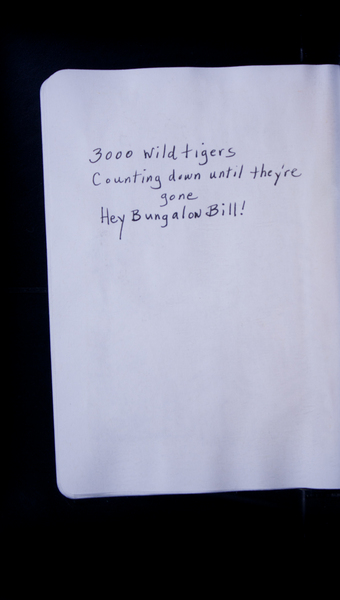 3000 wild tigers
Counting down until they're
gone
Hey Bungalow Bill!